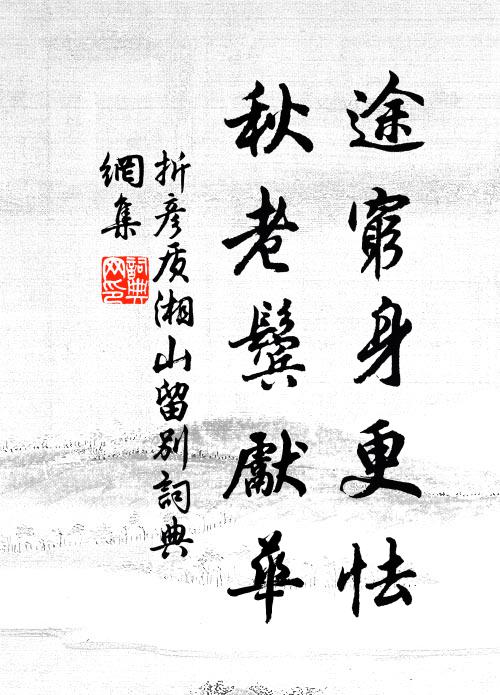 途窮身更怯
秋老鬢獻華
折彥质湘山留別詞典
網集
詞典
网印